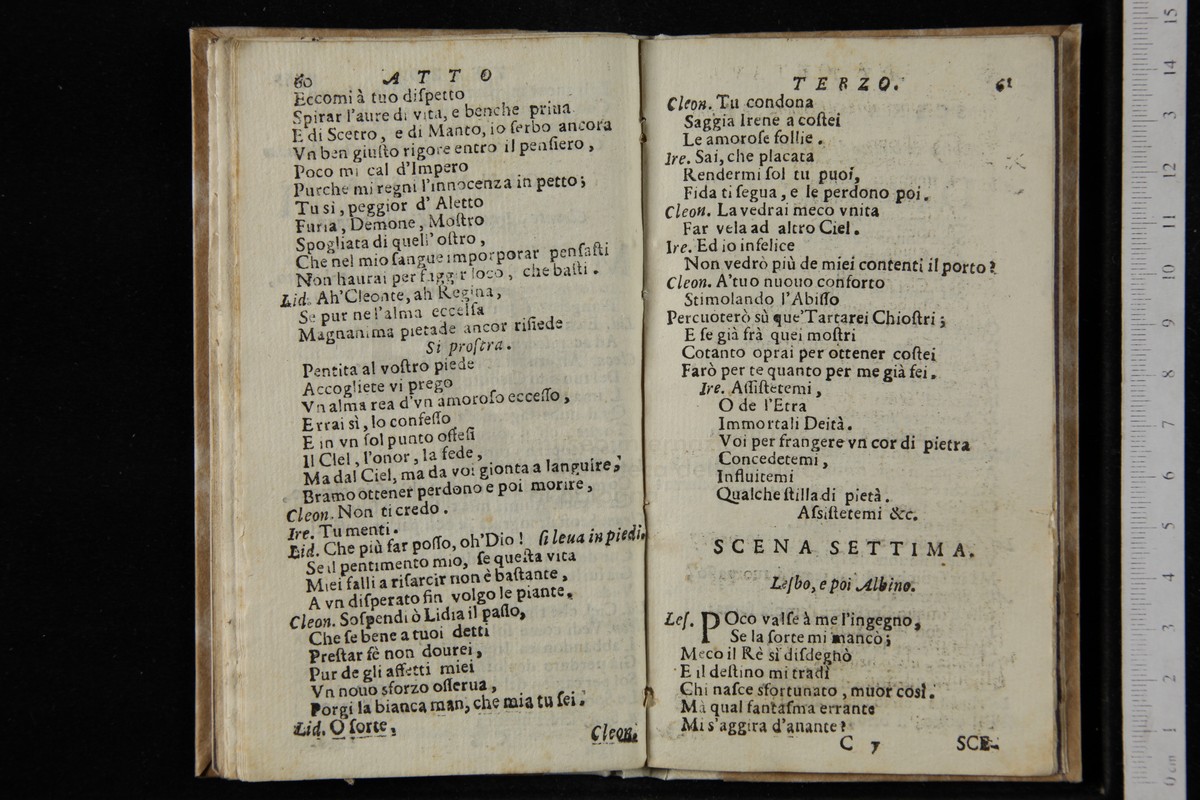 60 ATTO
Eccomi à tuo diſpetto
Spirar l'aure di vita, e benche priua
E di Scetro, e di Manto, io ſerbo ancora
Vn ben giuſto rigore entro il penſiero,
Poco mi cal d'Impero
Purche mi regni l'innocenza in petto;
Tu si, peggior d'Aletto
Furia, Demone, Moſtro
Spogliata di quell'oſtro,
Che nel mio ſangue imporporar penſaſti
Non haurai per fuggir loco, che baſti.
Lid. Ah'Cleonte, ah Regina,
Se pur ne l'alma eccelſa
Magnanima pietade ancor riſiede
Si proſtra.
Pentita al voſtro piede
Accogliete vi prego
Vn alma rea d'vn amoroſo ecceſſo,
Errai sì, lo confeſſo
E in vn ſol punto offeſi
Il Ciel, l'onor, la fede,
Ma dal Ciel, ma da voi gionta a languire,
Bramo ottener perdono e poi morire,
Cleon. Non ti credo.
Ire. Tu menti.
Lid. Che più far poſſo, oh'Dio! ſi leua in piedi.
Se il pentimento mio, ſe queſta vita
Miei falli a riſarcir non è baſtante,
A vn diſperato fin volgo le piante.
Cleon. Soſpendi ò Lidia il paſſo,
Che ſe bene a tuoi detti
Preſtar fè non dourei,
Pur de gli affetti miei
Vn nouo sforzo oſſerua,
Porgi la bianca man, che mia tu ſei.
Lid. O ſorte,
Cleon.
TERZO. 61
Cleon. Tu condona
Saggia Irene a coſtei
Le amoroſe follie.
Ire. Sai, che placata
Rendermi ſol tu puoi,
Fida ti ſegua, e le perdono poi.
Cleon. La vedrai meco vnita
Far vela ad altro Ciel.
Ire. Ed io infelice
Non vedrò più de miei contenti il porto?
Cleon. A'tuo nuouo conforto
Stimolando l'Abiſſo
Percuoterò sù que'Tartarei Chioſtri;
E ſe già frà quei moſtri
Cotanto oprai per ottener coſtei
Farò per te quanto per me già fei.
Ire. Aſſiſtetemi,
O de l'Etra
Immortali Deità.
Voi per frangere vn cor di pietra
Concedetemi,
Influitemi
Qualche ſtilla di pietà.
Aſsiſtetemi &c.
SCENA SETTIMA.
Leſbo, e poi Albino.
Leſ. POco valſe à me l'ingegno,
Se la ſorte mi mancò;
Meco il Rè si diſdegnò
E il deſtino mi tradì
Chi naſce sfortunato, muor così.
Mà qual fantaſma errante
Mi s'aggira d'anante?
C 7 SCE-